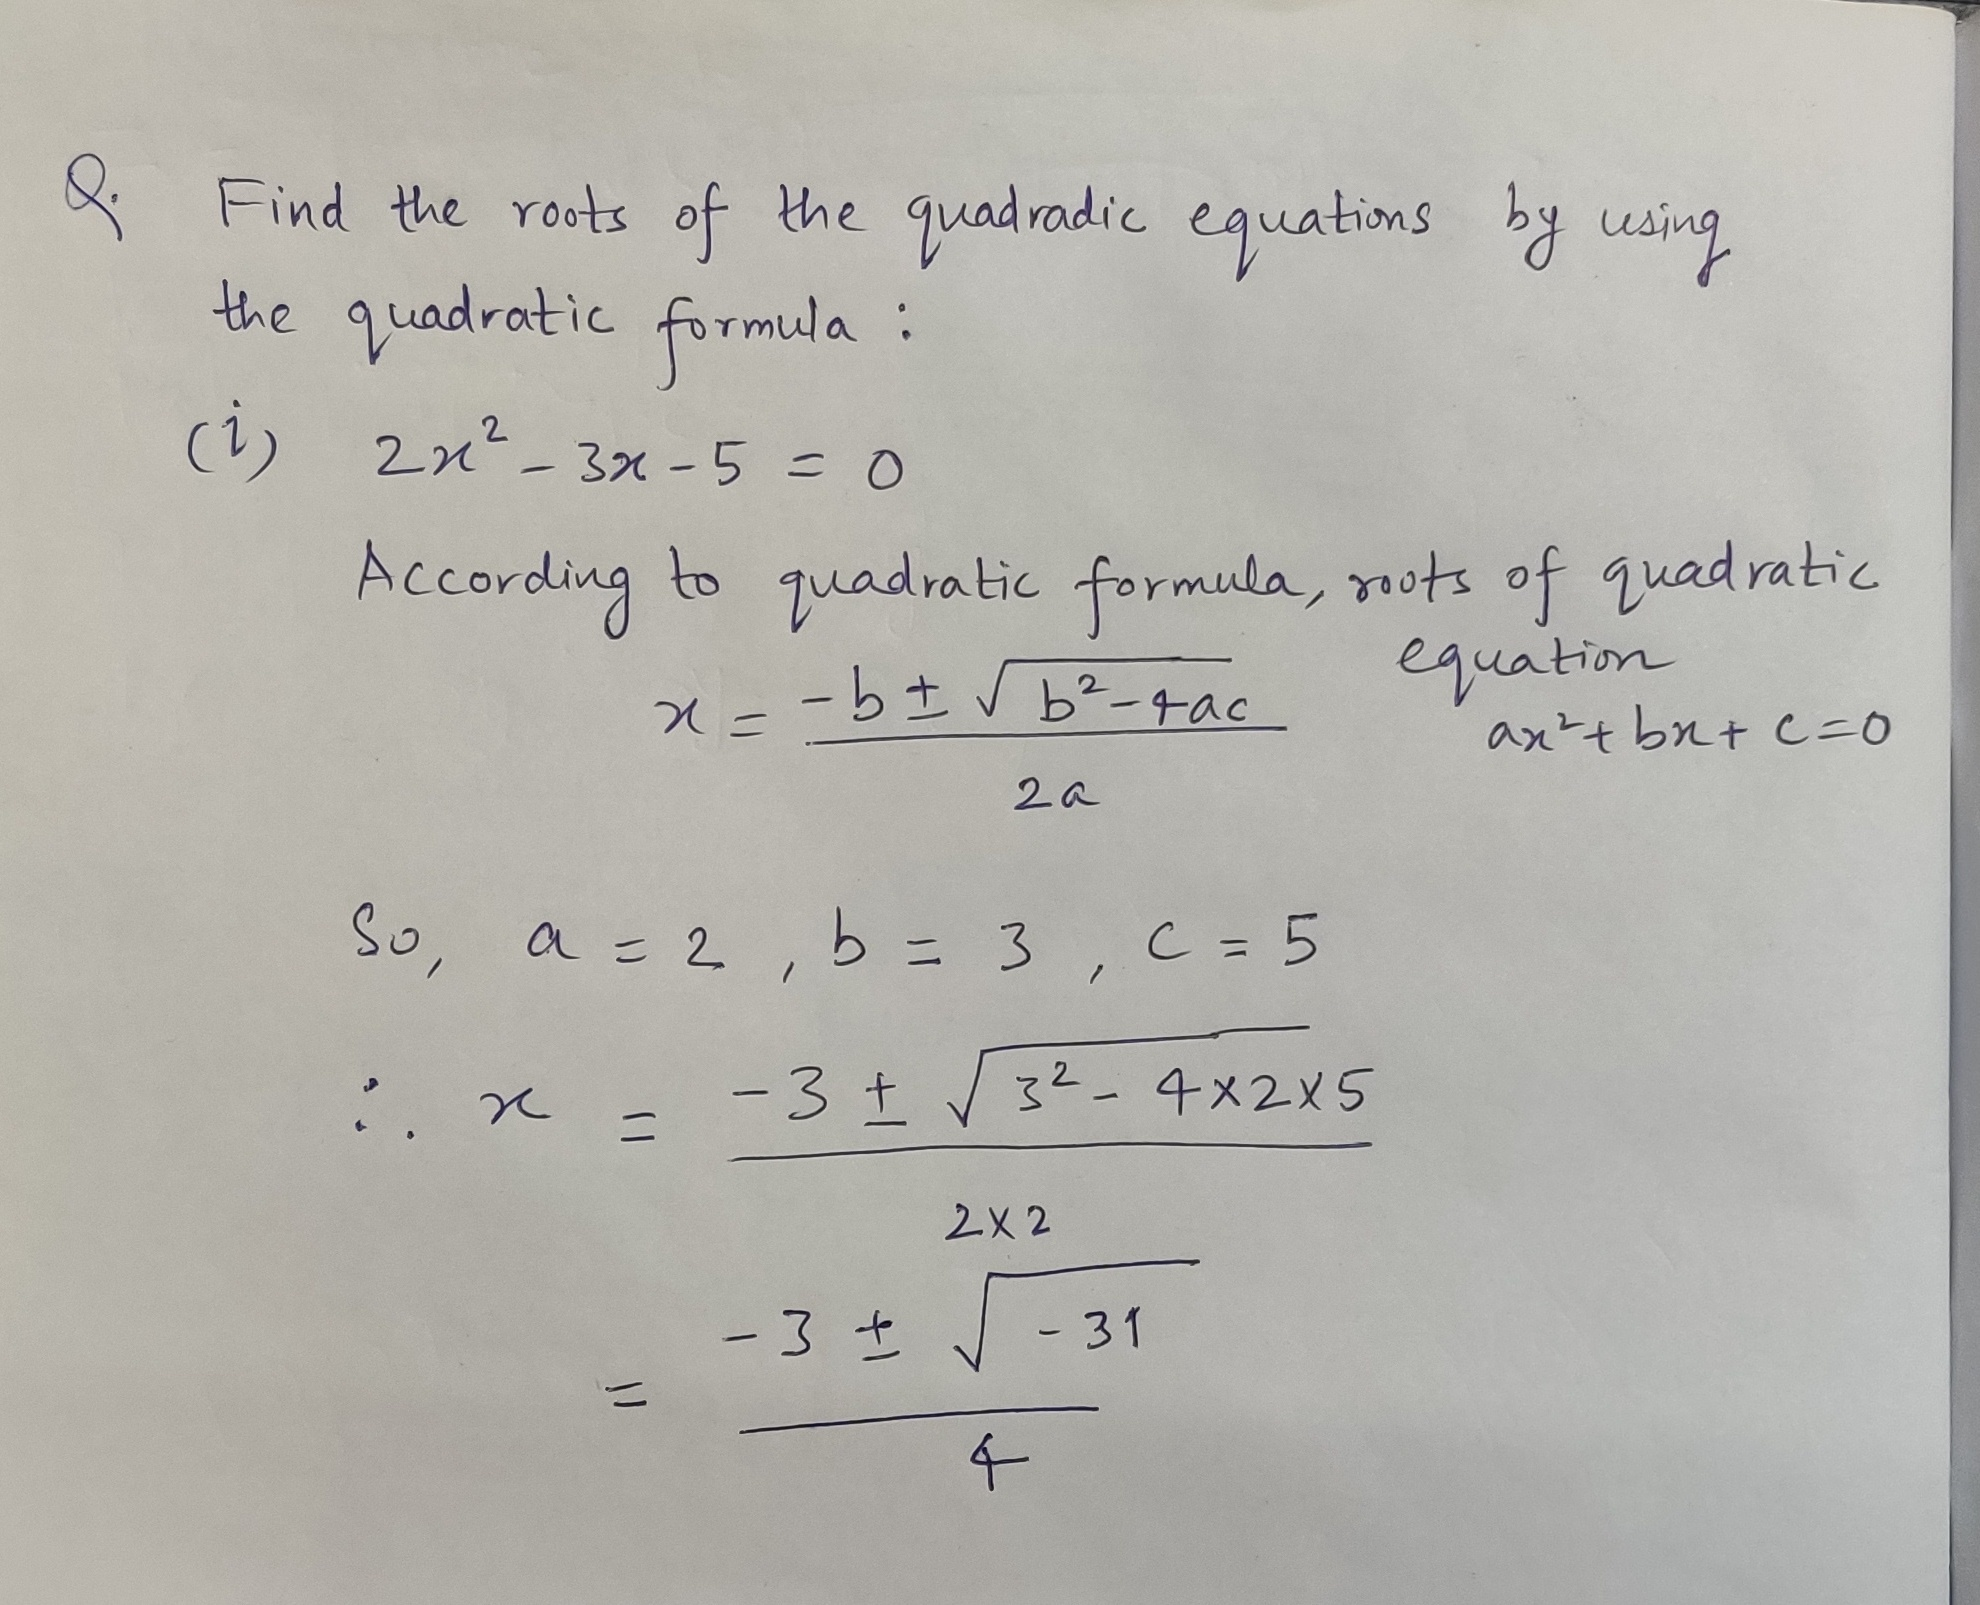 Q. Find the roots of the quadradic equations by using
the quadratic formula :
(i) 2x² - 3x - 5 = 0
According to quadratic formula, roots of quadratic
equation
x = -b ± √b²-4ac
ax² + bx + c = 0
2a
So, a = 2 , b = 3 , c = 5
∴ x = -3 ± √3² - 4×2×5
2×2
= -3 ± √-31
4